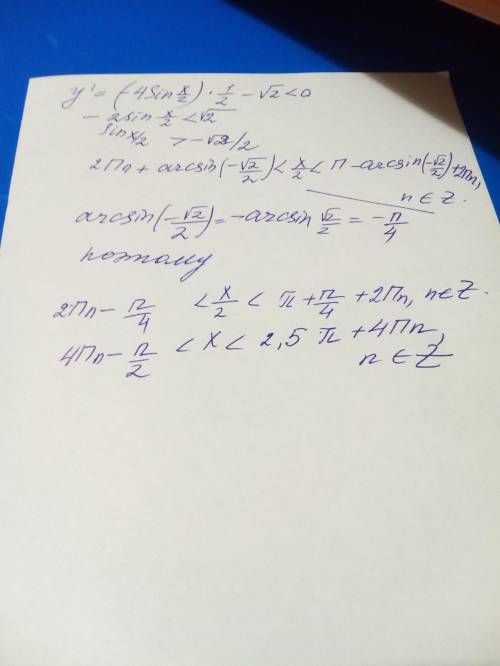 y' = (-4sin x/2) · 1/2 - √2 < 0
- 2sin x/2 < √2
sin x/2 > -√2/2
2πn + arcsin(-√2/2) < x/2 < π - arcsin(-√2/2) + 2πn,
n ∈ Z.
arcsin(-√2/2) = -arcsin √2/2 = -π/4
поэтому
2πn - π/4 < x/2 < π + π/4 + 2πn, n ∈ Z.
4πn - π/2 < x < 2,5 π + 4πn,
n ∈ Z